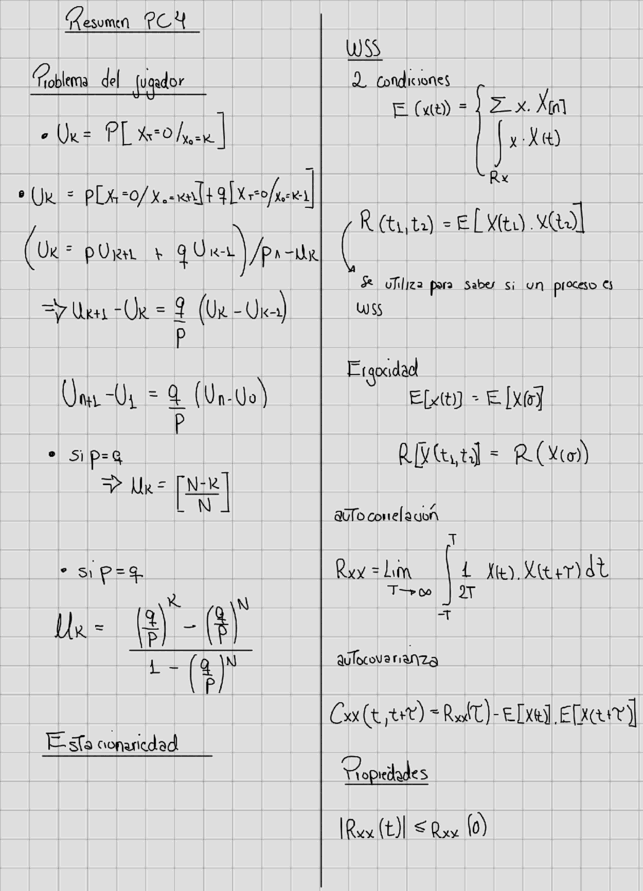 Resumen PC4
Problema del jugador
• U_K = P[X_T=0/X_0=K]
• U_K = p[X_T=0/X_0=K+1]+q[X_T=0/X_0=K-1]
(U_K = pU_{K+1} + qU_{K-1})/pn-μ_K
⇒ U_{K+1}-U_K = q/p (U_K-U_{K-1})
U_{n+1}-U_1 = q/p (U_n-U_0)
• si p=q
⇒ μ_K = [N-K/N]
• si p=q
μ_K = ((q/p)^K - (q/p)^N)/(1-(q/p)^N)
Estacionariedad
WSS
2 condiciones
E(x(t)) = { Σ x. X[n]
∫_{Rx} x·X(t)
R(t_1,t_2) = E[X(t_1).X(t_2)]
Se utiliza para saber si un proceso es
WSS
Ergocidad
E[x(t)] = E[X(σ)]
R[X(t_1,t_2] = R(X(σ))
autocorrelación
Rxx = Lim_{T→∞} ∫_{-T}^{T} 1/2T X(t).X(t+τ)dt
autocovarianza
Cxx(t,t+τ) = Rxx(τ)-E[X(t)].E[X(t+τ)]
Propiedades
|Rxx(t)| ≤ Rxx(0)